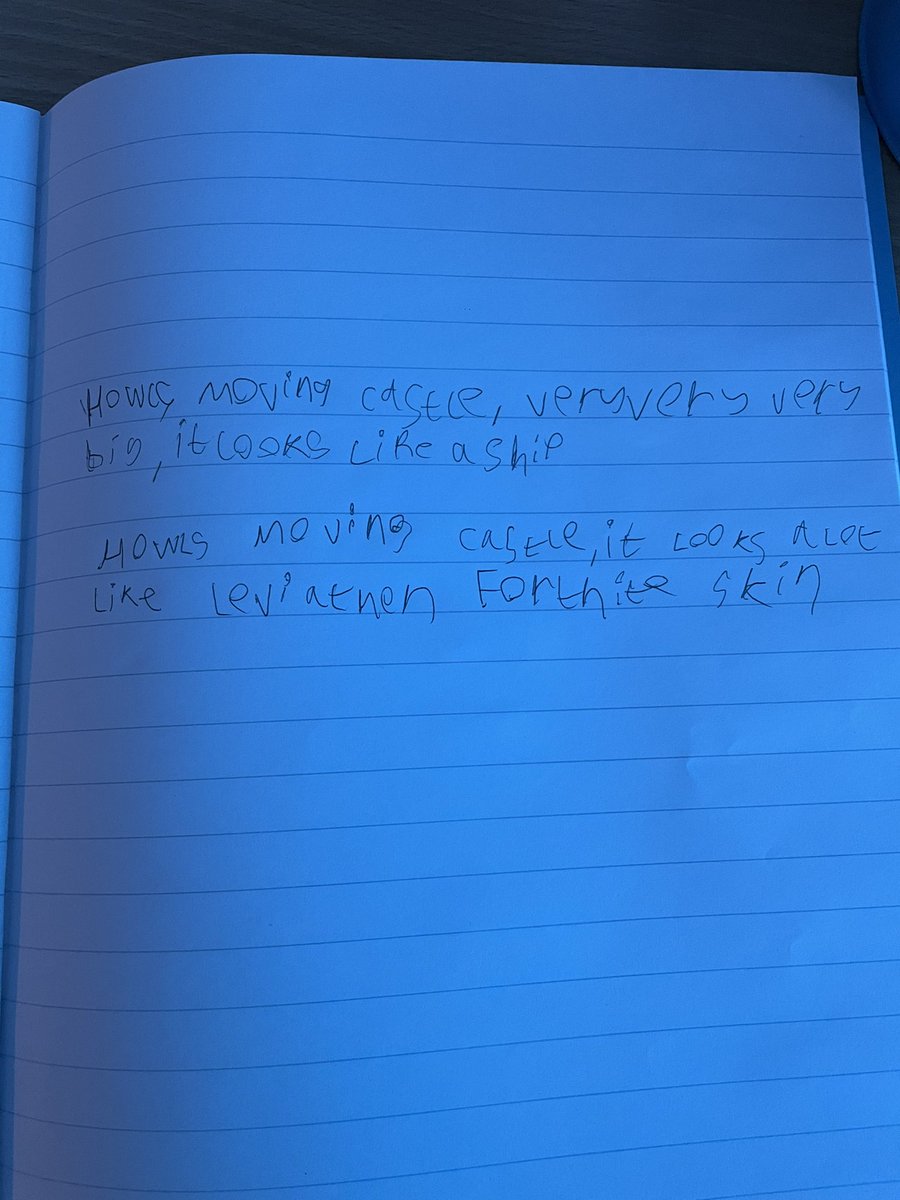 Howls moving castle, veryvery very
big, it looks like a ship
Howls moving castle, it looks alot
like leviathen Forthite skin